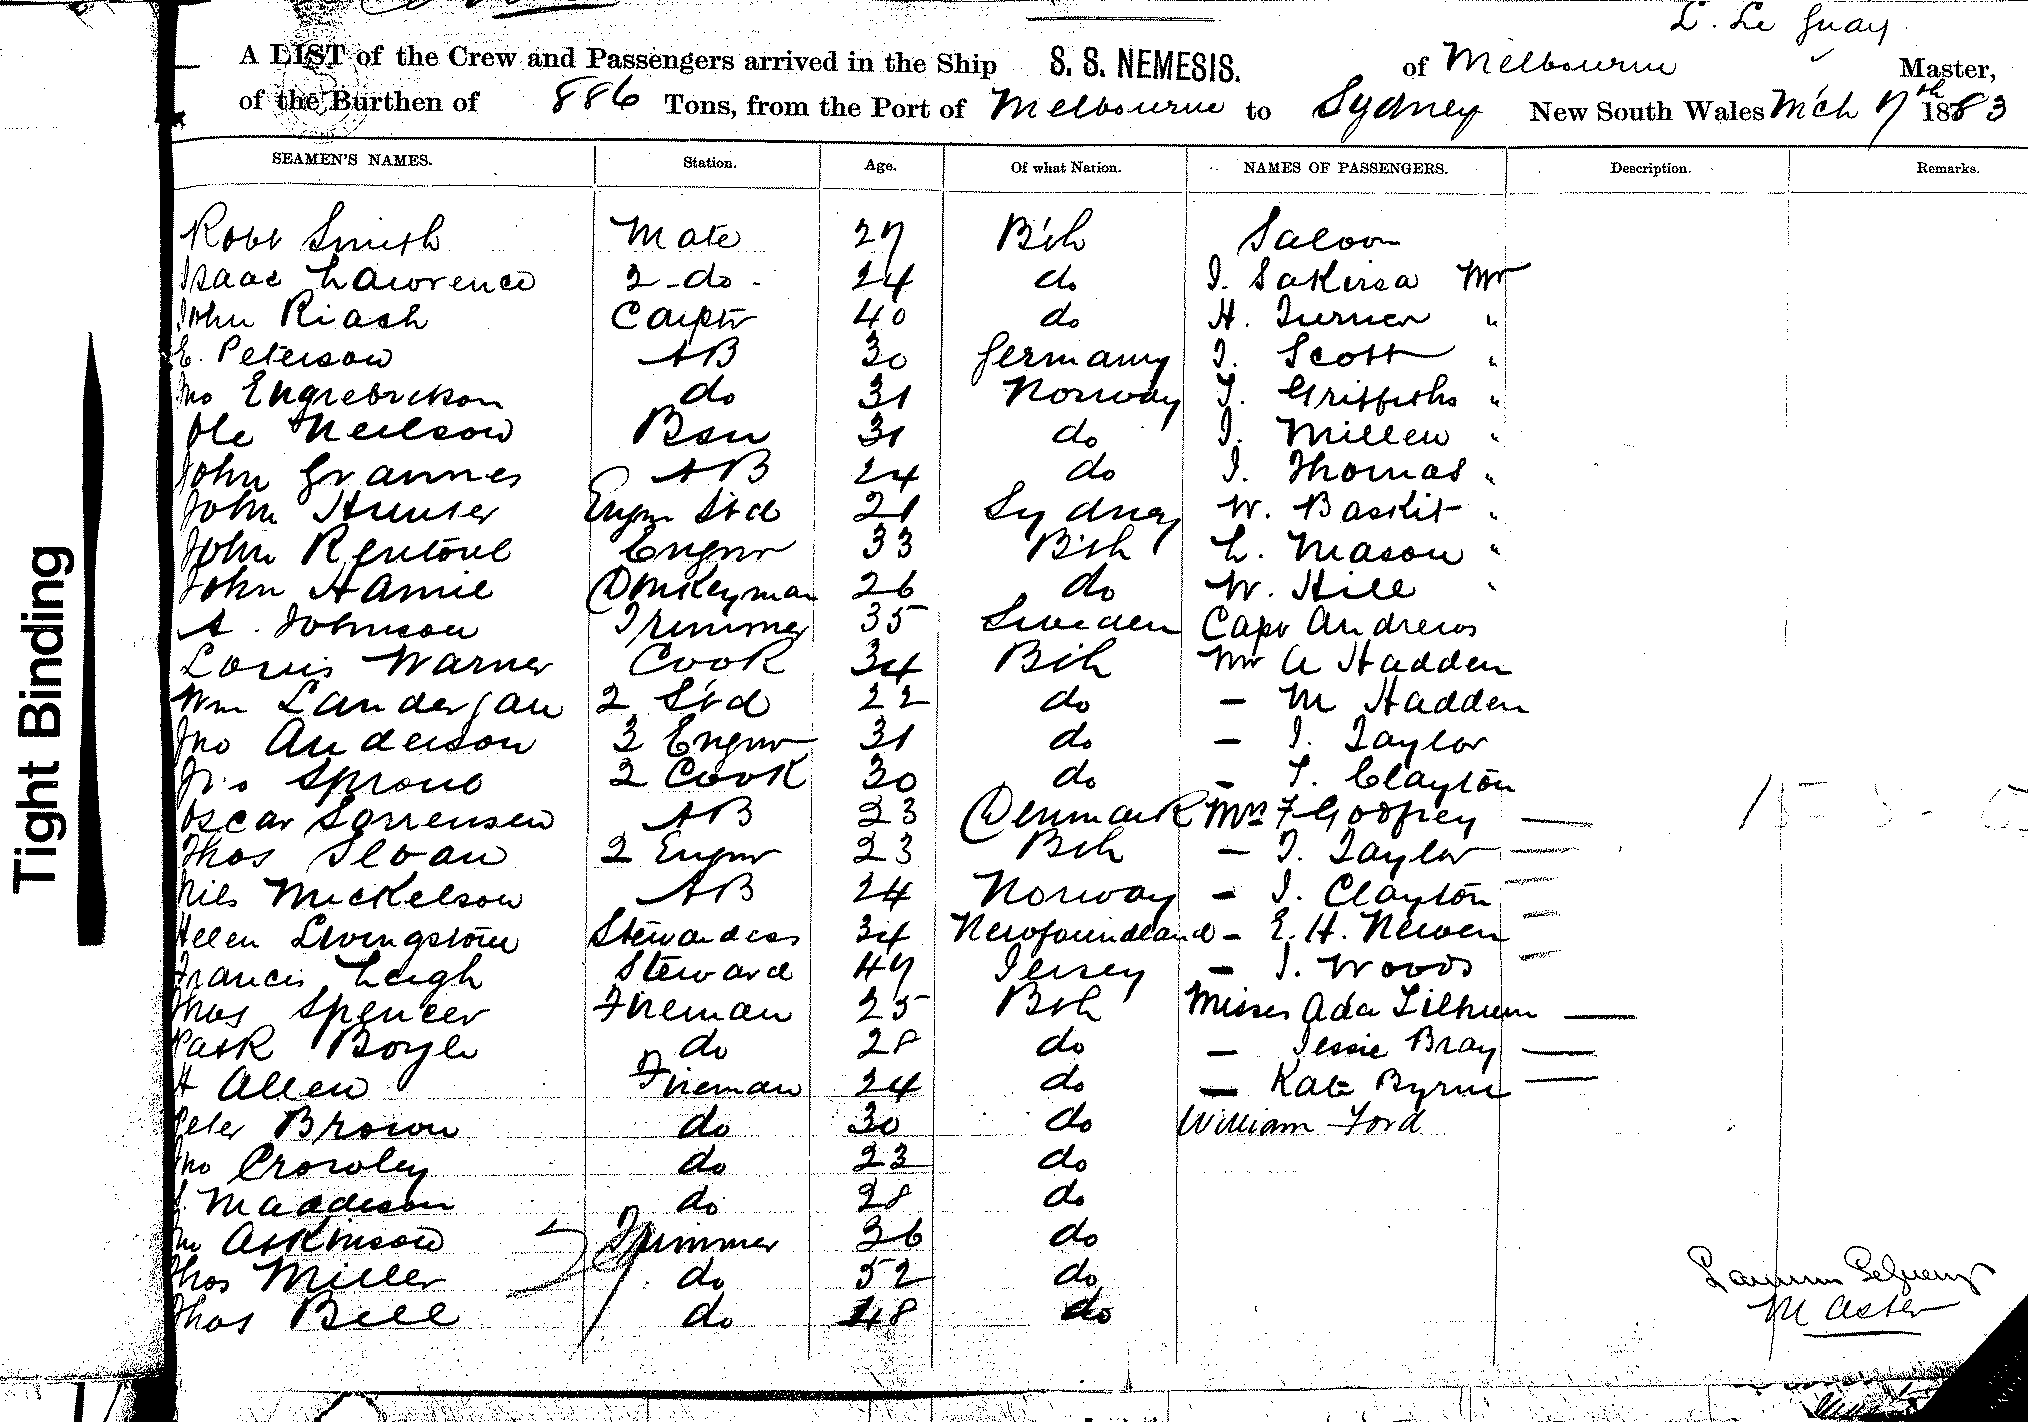 L. Le Guay
A LIST of the Crew and Passengers arrived in the Ship S. S. NEMESIS. of Melbourne Master,
of the Burthen of 886 Tons, from the Port of Melbourne to Sydney New South Wales M'ch 7th 1883
SEAMEN'S NAMES. Station. Age. Of what Nation. NAMES OF PASSENGERS. Description. Remarks.
Robt Smith Mate 27 B'ish Saloon
Isaac Lawrence 2 do 24 do J. Sakirsa Mr
John Riach Carptr 40 do H. Turner "
E. Peterson AB 30 Germany J. Scott "
Jno Engrebrikson do 31 Norway T. Griffiths "
Ole Neilson Bsn 31 do J. Millen "
John Grannes AB 24 do J. Thomas "
John Hunter Engrs Std 21 Sydney W. Baskit "
John Rentoul Engnr 33 B'sh L. Mason "
John Hamie Donkeyman 26 do W. Hill "
A. Johnson Trimmer 35 Sweden Capt Andrews
Louis Warner Cook 34 Bih Mr A Hadden
Wm Landergan 2 St'd 22 do - M Hadden
Jno Anderson 3 Engnr 31 do - J. Taylor
Jno Sproul 2 Cook 30 do - T. Clayton
Oscar Sorrensen AB 23 Denmark Mrs F Godfrey
Thos Sloan 2 Engnr 23 Bih - J. Taylor
Nils Mickelson AB 24 Norway - J. Clayton
Helen Livingstone Stewardess 34 Newfoundland - E. H. Newen
Francis Leigh Steward 47 Jersey - J. Woods
Thos Spencer Fireman 25 Bsh Misses Ada
Patk Boyle do 28 do - Jessie Bray
H Allen Fireman 24 do - Kate Byrne
Peter Brown do 30 do William Ford
Jno Crowley do 23 do
J. Maddison do 28 do
Jno Askinson Trimmer 36 do
Thos Miller do 52 do
Thos Bell do 48 do
Master
Tight Binding